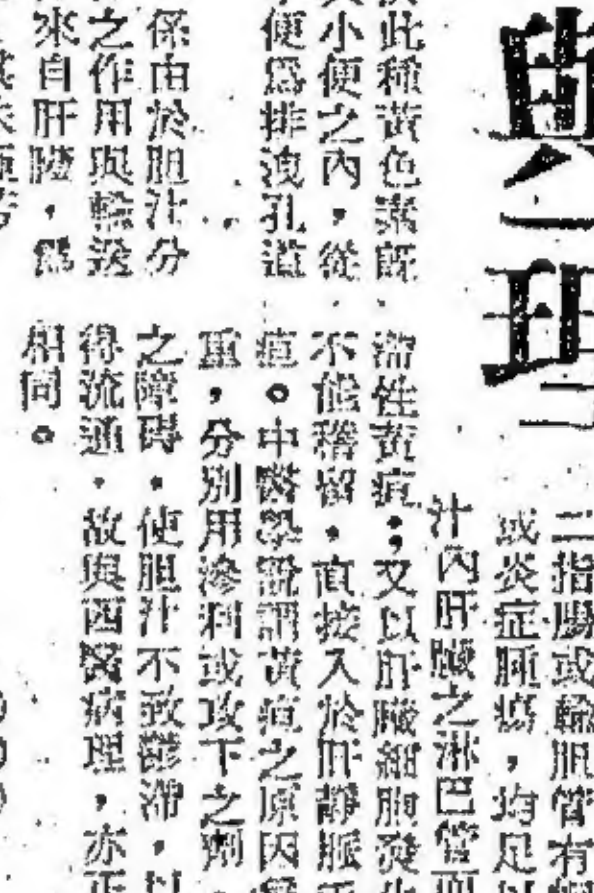 與
理
二指腸或輸胆管有
或炎症腫瘍，均足
汁內肝臟之淋巴管而
滯性黃疸；又以肝臟細胞發
不能稽留，直接入於肝靜脈
疸。中醫學說謂黃疸之原因爲
重，分別用滲利或攻下之劑，
之障碍，使胆汁不致鬱滯，以
得流通，故與西醫病理，亦正
相同。
此種黃色素既
小便之內，從
便爲排洩孔道
係由於胆汁分
之作用與輸送
來自肝臟，爲